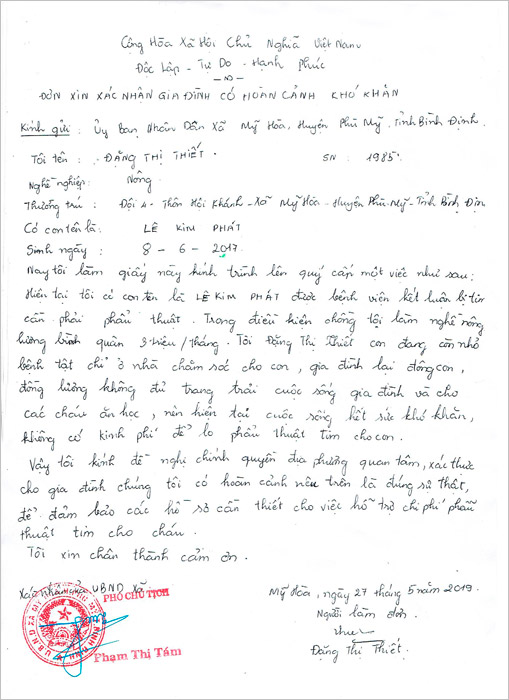 Cộng Hòa Xã Hội Chủ Nghĩa Việt Nam
Độc Lập - Tự Do - Hạnh Phúc
ĐƠN XIN XÁC NHẬN GIA ĐÌNH CÓ HOÀN CẢNH KHÓ KHĂN
Kính gửi : Ủy Ban Nhân Dân Xã Mỹ Hòa, Huyện Phù Mỹ, Tỉnh Bình Định.
Tôi tên : ĐẶNG THỊ THIẾT. SN : 1985
Nghề nghiệp: Nông.
Thường trú : Đội 4 - Thôn Hội Khánh - Xã Mỹ Hòa - Huyện Phù Mỹ - Tỉnh Bình Địn
Có con tên là: LÊ KIM PHÁT
Sinh ngày : 8 - 6 - 2017
Nay tôi làm giấy này kính trình lên quý cấp một việc như sau:
Hiện tại tôi có con tên là LÊ KIM PHÁT được bệnh viện kết luận bị tim
cần phải phẩu thuật. Trong điều kiện chồng tôi làm nghề nông
lương bình quân 3 triệu/tháng. Tôi Đặng Thị Thiết con đang còn nhỏ
bệnh tật chỉ ở nhà chăm sóc cho con, gia đình lại đông con,
đồng lương không đủ trang trải cuộc sống gia đình và cho
các cháu ăn học, nên hiện tại cuộc sống hết sức khó khăn,
không có kinh phí để lo phẩu thuật tim cho con.
Vậy tôi kính đề nghị chính quyền địa phương quan tâm, xác thực
cho gia đình chúng tôi có hoàn cảnh nêu trên là đúng sử thật,
để đảm bảo các hồ sơ cần thiết cho việc hỗ trợ chi phí phẩu
thuật tim cho cháu.
Tôi xin chân thành cảm ơn.
Xác nhận của UBND Xã
Mỹ Hòa, ngày 27 tháng 5 năm 2019.
PHÓ CHỦ TỊCH
Người làm đơn.
Phạm Thị Tám
Đặng Thị Thiết.